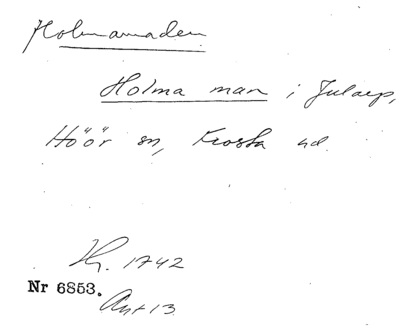 Holmamaden
Holma man i Jularp,
Höör sn, Frosta hd.
Hs. 1742
Nr 6853.
Ant 13